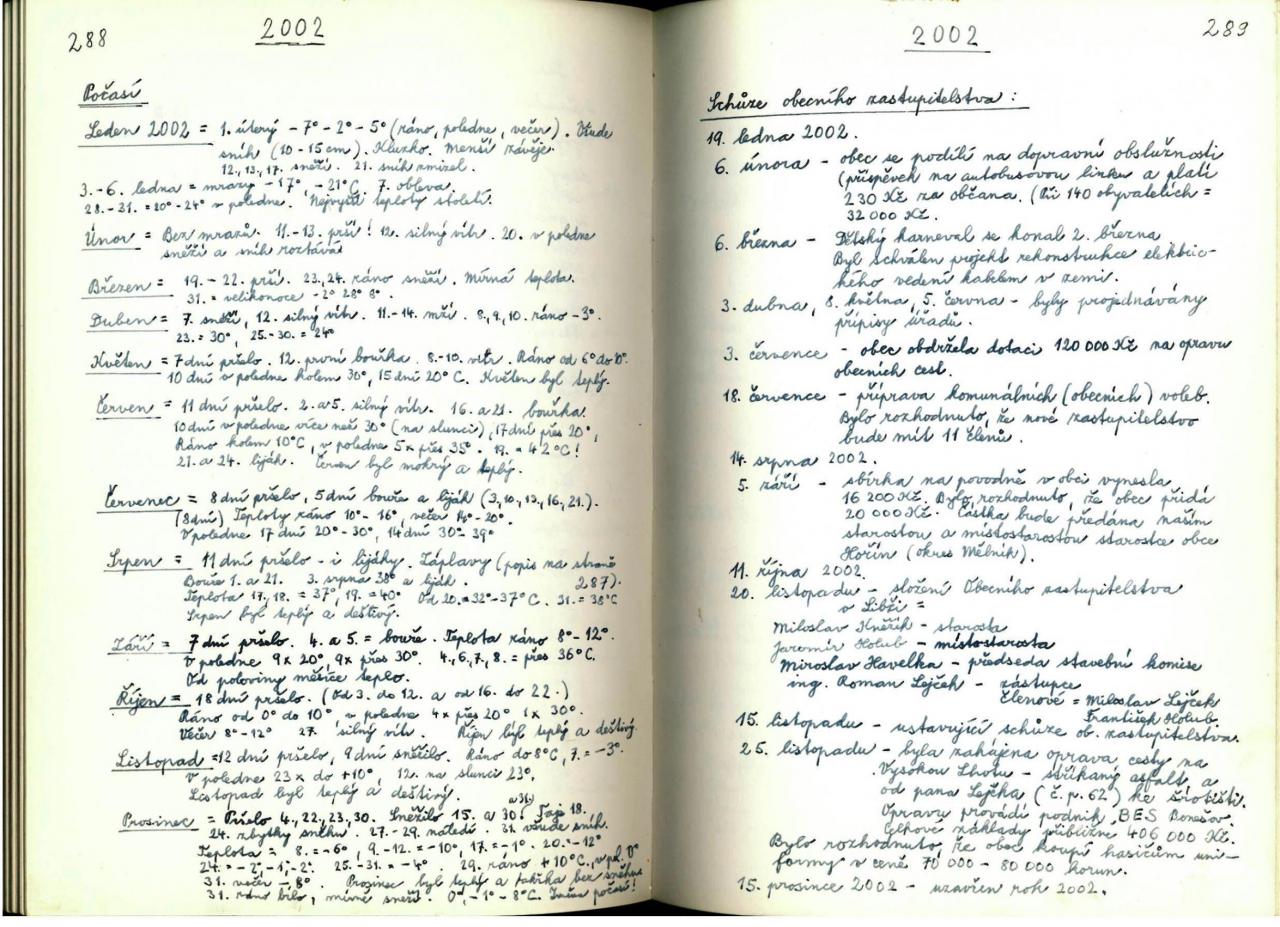 288
2002
Počasí
Leden 2002 = 1. úterý - 7° - 2° - 5° (ráno, poledne, večer). Všude
sníh (10 - 15 cm). Kluzko. Menší závěje.
12., 13., 17. sněží. 21. sníh zmizel.
3. - 6. ledna = mrazy -17°, -21°C. 7. obleva.
28. - 31. = 20° - 24° v poledne. Nejvyšší teploty století.
Únor = Bez mrazů. 11. - 13. prší! 12. silný vítr. 20. v poledne
sněží a sníh roztává
Březen = 19. - 22. prší. 23., 24. ráno sněží. Mírná teplota.
31. = velikonoce -2° 28° 8°.
Duben = 7. sněží, 12. silný vítr. 11. - 14. mží. 8., 9., 10. ráno -3°.
23. = 30°, 25. - 30. = 24°
Květen = 7 dní pršelo. 12. první bouřka. 8. - 10. vítr. Ráno od 6° do
10 dní v poledne kolem 30°, 15 dní 20°C. Květen byl teplý.
Červen = 11 dní pršelo. 2. a 5. silný vítr. 16. a 21. bouřka.
10 dní v poledne více než 30° (na slunci), 17 dní přes 20°,
Ráno kolem 10°C, v poledne 5x přes 35°. 19. = 42°C!
21. a 24. liják. Červen byl mokrý a teplý.
Červenec = 8 dní pršelo, 5 dní bouře a liják (3., 10., 13., 16., 21.).
(8 dní) Teploty ráno 10° - 16°, večer 14° - 20°.
V poledne 17 dní 20° - 30°, 14 dní 30° - 39°
Srpen = 11 dní pršelo - i lijáky. Záplavy (popis na straně
Bouře 1. a 21. 3. srpna 38° a liják. 287).
Teplota 17., 18. = 37°, 19. = 40° Od 20. = 32° - 37°C. 31. = 38°C
Srpen byl teplý a deštivý.
Září = 7 dní pršelo. 4. a 5. = bouře. Teplota ráno 8° - 12°.
V poledne 9x 20°, 9x přes 30°. 4., 6., 7., 8. = přes 36°C.
Od poloviny měsíce teplo.
Říjen = 18 dní pršelo. (Od 3. do 12. a od 16. do 22.)
Ráno od 0° do 10°, v poledne 4x přes 20° 1x 30°.
Večer 8° - 12° 27. silný vítr. Říjen byl teplý a deštivý.
Listopad = 12 dní pršelo, 9 dní sněžilo. Ráno do 8°C, 7. = -3°.
V poledne 23x do +10°, 12. na slunci 23°.
Listopad byl teplý a deštivý.
a 31.
Prosinec = Pršelo 4., 22., 23., 30. Sněžilo 15. a 30. Taje 18.
24. zbytky sněhu. 27. - 29. náledí. 31. všude sníh.
Teplota = 8. = -6°, 9. - 12. = -10°, 17. = -1°. 20. - 12°
24. = -2°, -1°, -2°. 25. - 31. = -4°. 29. ráno +10°C, v pol. 0°
31. večer - 8°. Prosinec byl teplý a takřka bez sněhu
31. ráno bílo, mírně sněží. 0°, -1° - 8°C. Změna počasí!
2002
289
Schůze obecního zastupitelstva:
19. ledna 2002.
6. února - obec se podílí na dopravní obslužnosti
(příspěvek na autobusovou linku a platí
230 Kč za občana. (Při 140 obyvatelích =
32 000 Kč.
6. března - Dětský karneval se konal 2. března
Byl schválen projekt rekonstrukce elektric-
kého vedení kabelem v zemi.
3. dubna, 8. května, 5. června - byly projednávány
přípisy úřadů.
3. července - obec obdržela dotaci 120 000 Kč na opravu
obecních cest.
18. července - příprava komunálních (obecních) voleb.
Bylo rozhodnuto, že nové zastupitelstvo
bude mít 11 členů.
14. srpna 2002.
5. září - sbírka na povodně v obci vynesla
16 200 Kč. Bylo rozhodnuto, že obec přidá
20 000 Kč. Částka bude předána naším
starostou a místostarostou starostce obce
Hořín (okres Mělník).
11. října 2002.
20. listopadu - složení Obecního zastupitelstva
v Libži =
Miloslav Kněřík - starosta
Jaromír Holub - místostarosta
Miroslav Havelka - předseda stavební komise
ing. Roman Lejček - zástupce
Členové = Miloslav Lejček
František Holub.
15. listopadu - ustavující schůze ob. zastupitelstva.
25. listopadu - byla zahájena oprava cesty na
Vysokou Lhotu - stříkaný asfalt, a
od pana Lejčka (č. p. 62) ke šrotišti.
Opravu provádí podnik BES Benešov.
Celkové náklady přibližně 406 000 Kč.
Bylo rozhodnuto, že obec koupí hasičům uni-
formy v ceně 70 000 - 80 000 korun.
15. prosince 2002 - uzavřen rok 2002.